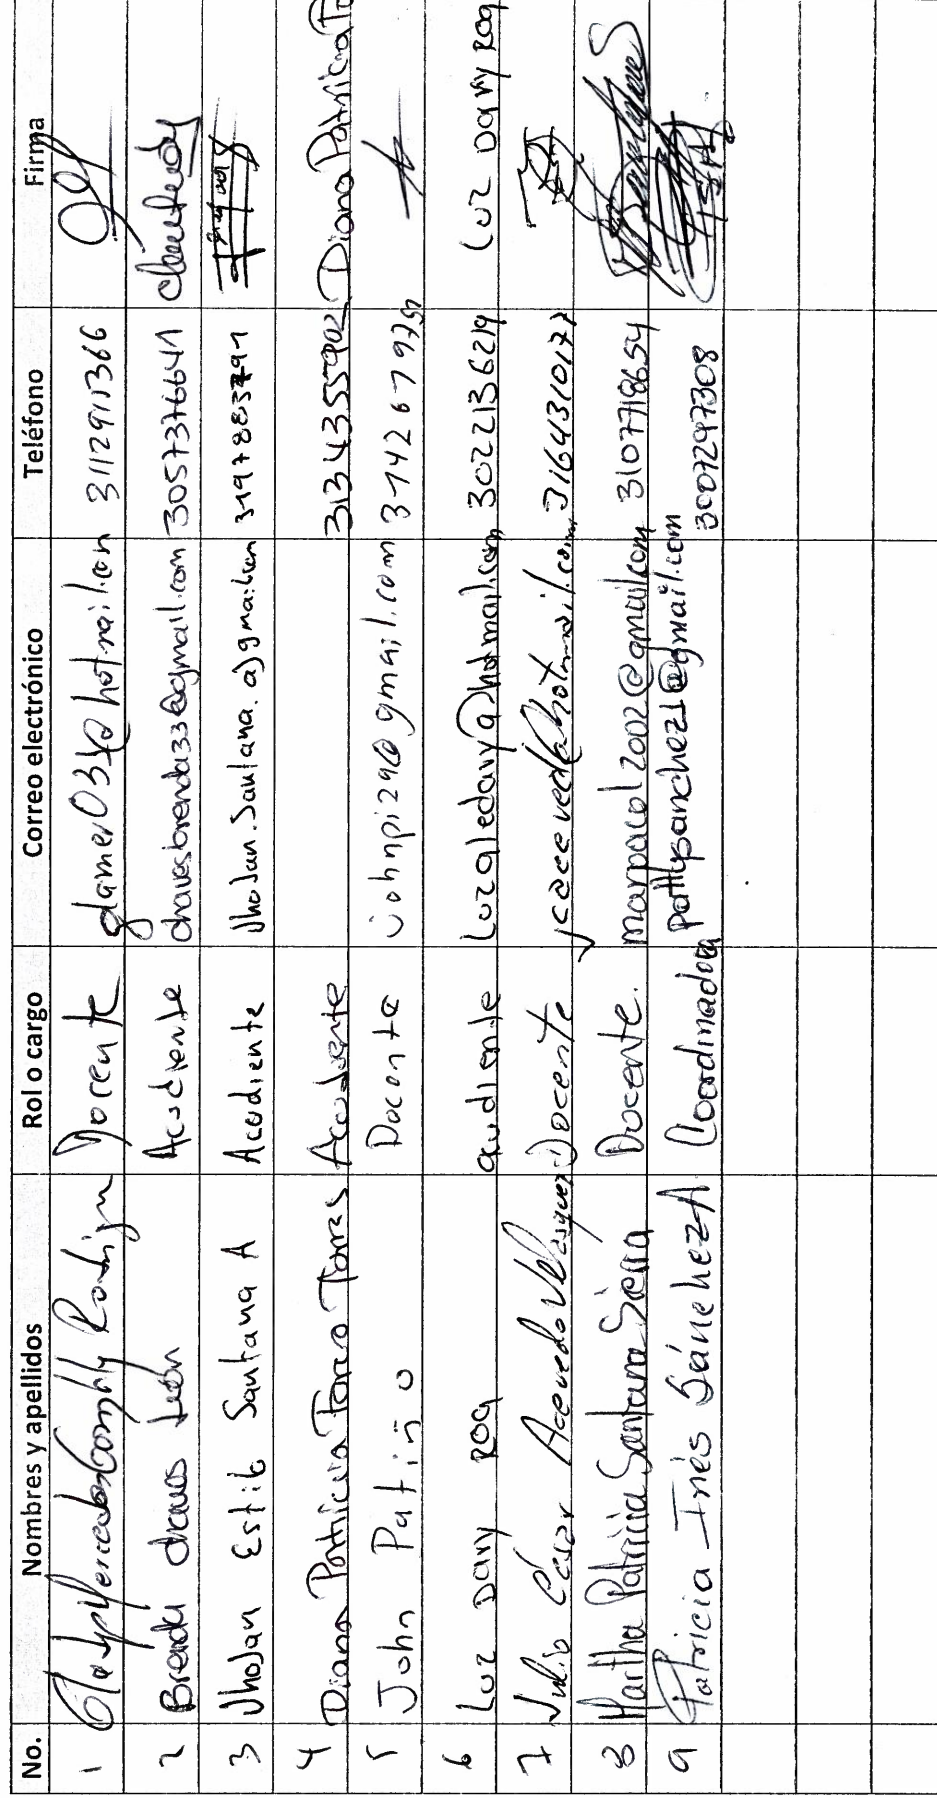 No. Nombres y apellidos Rol o cargo Correo electrónico Teléfono Firma
1 Docente 3112911366
2 Brenda chaves León Acudiente chavesbrenda33@gmail.com 3057376641
3 Jhojan Estib Santana A Acudiente Jhojan.Santana.a)gmail.com
4 Diana Patricia Torres Torres Acudiente 3134355902 Diana Patricia
5 John Patiño Docente Johnpi29@gmail.com
6 Luz Dary Roa acudiente luzgledary@hotmail.com 3022136219 Luz Dary Roa
7 Julio César Acevedo Velasquez Docente 3164310177
8 Martha Patricia Santana Sierra Docente. 3107718654
9 Patricia Inés Sánchez A Coordinadora pattysanchez1@gmail.com 3007297308